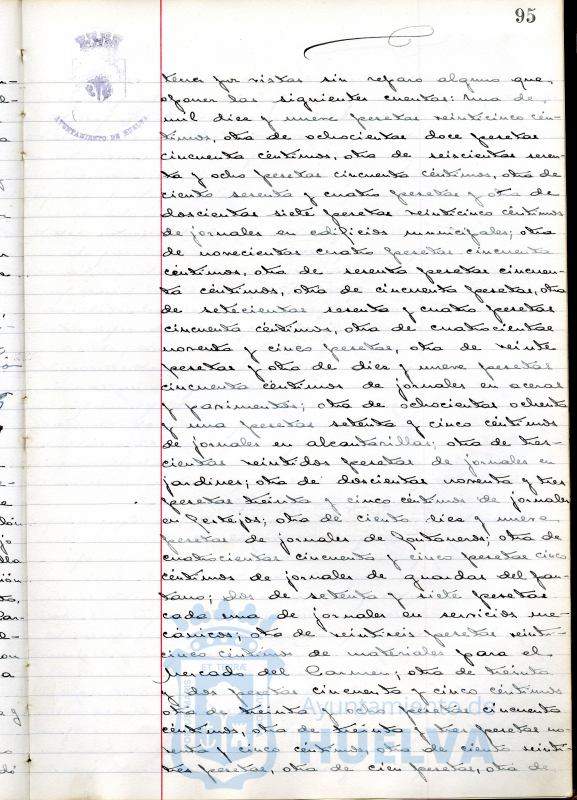 95
AYUNTAMIENTO DE HUELVA
tener por vistas sin reparo alguno que
oponer las siguientes cuentas: una de
mil diez y nueve pesetas veinticinco cén-
timos, otra de ochocientas doce pesetas
cincuenta céntimos, otra de seiscientas seten-
ta y ocho pesetas cincuenta céntimos, otra de
ciento sesenta y cuatro pesetas y otra de
doscientas siete pesetas veinticinco céntimos
de jornales en edificios municipales; otra
de novecientas cuatro pesetas cincuenta
céntimos, otra de sesenta pesetas cincuen-
ta céntimos, otra de cincuenta pesetas, otra
de setecientas sesenta y cuatro pesetas
cincuenta céntimos, otra de cuatrocientas
noventa y cinco pesetas, otra de veinte
pesetas y otra de diez y nueve pesetas
cincuenta céntimos de jornales en aceras
y pavimentos; otra de ochocientas ochenta
y una pesetas setenta y cinco céntimos
de jornales en alcantarillas; otra de tres-
cientas veintidos pesetas de jornales en
jardines; otra de doscientas noventa y tres
pesetas treinta y cinco céntimos de jornales
en festejos; otra de ciento diez y nueve
pesetas de jornales de fontaneros; otra de
cuatrocientas cincuenta y cinco pesetas cinco
céntimos de jornales de guardas del pan-
tano; dos de setenta y siete pesetas
cada una de jornales en servicios me-
cánicos; otra de veintiseis pesetas veinti-
cinco céntimos de materiales para el
Mercado del Carmen; otra de treinta
y dos pesetas cincuenta y cinco céntimos
otra de treinta y dos pesetas cincuenta
céntimos, otra de treinta y tres pesetas no-
venta y cinco céntimos, otra de ciento veinti-
tres pesetas, otra de cien pesetas, otra de
Ayuntamiento d
HUELVA